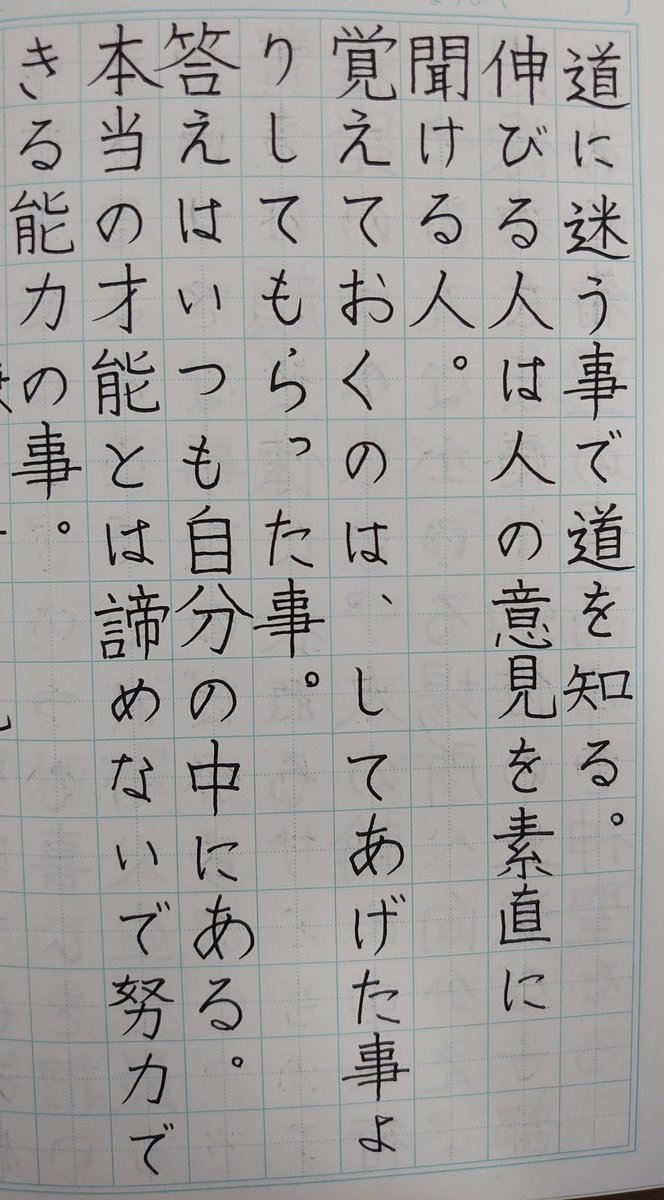 道に迷う事で道を知る。
伸びる人は人の意見を素直に
聞ける人。
覚えておくのは、してあげた事よ
りしてもらった事。
答えはいつも自分の中にある。
本当の才能とは諦めないで努力で
きる能力の事。